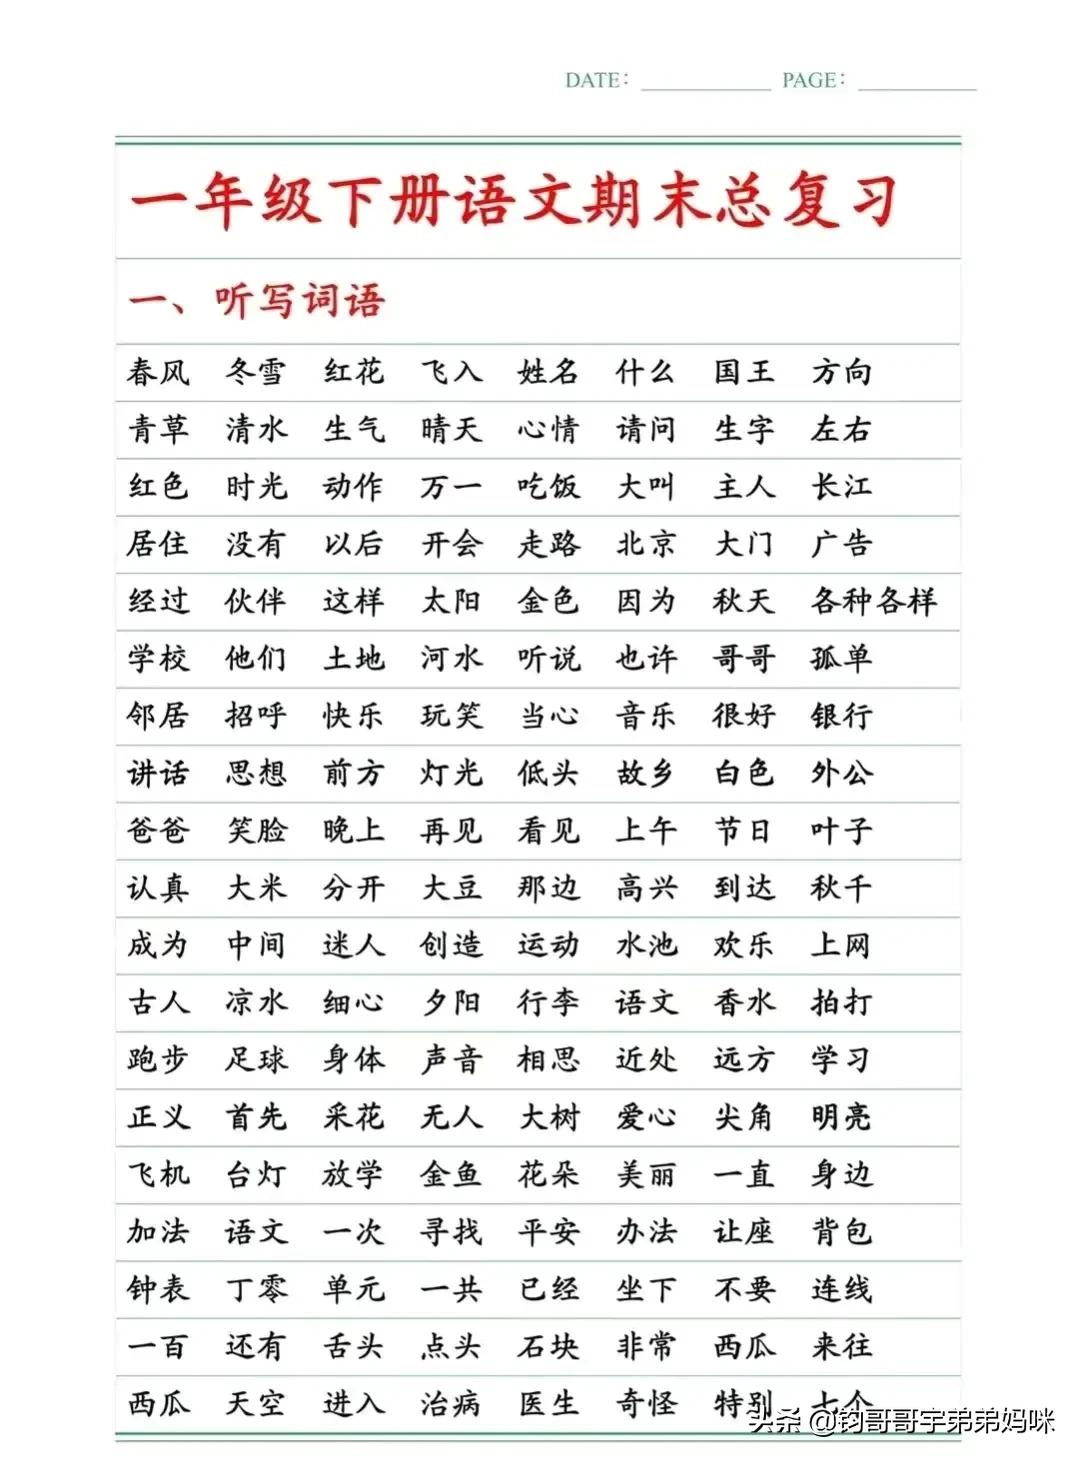 DATE: PAGE:
一年级下册语文期末总复习
一、听写词语
春风 冬雪 红花 飞入 姓名 什么 国王 方向
青草 清水 生气 晴天 心情 请问 生字 左右
红色 时光 动作 万一 吃饭 大叫 主人 长江
居住 没有 以后 开会 走路 北京 大门 广告
经过 伙伴 这样 太阳 金色 因为 秋天 各种各样
学校 他们 土地 河水 听说 也许 哥哥 孤单
邻居 招呼 快乐 玩笑 当心 音乐 很好 银行
讲话 思想 前方 灯光 低头 故乡 白色 外公
爸爸 笑脸 晚上 再见 看见 上午 节日 叶子
认真 大米 分开 大豆 那边 高兴 到达 秋千
成为 中间 迷人 创造 运动 水池 欢乐 上网
古人 凉水 细心 夕阳 行李 语文 香水 拍打
跑步 足球 身体 声音 相思 近处 远方 学习
正义 首先 采花 无人 大树 爱心 尖角 明亮
飞机 台灯 放学 金鱼 花朵 美丽 一直 身边
加法 语文 一次 寻找 平安 办法 让座 背包
钟表 丁零 单元 一共 已经 坐下 不要 连线
一百 还有 舌头 点头 石块 非常 西瓜 来往
西瓜 天空 进入 治病 医生 奇怪 特别 七个
头条 @钧哥哥宇弟弟妈咪